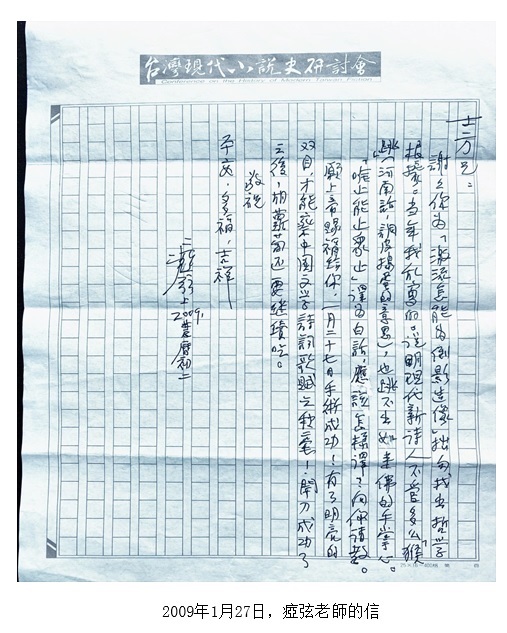 台灣現代小說史研討會
Conference on the History of Modern Taiwan Fiction
兄：
謝謝你為「激流怎能為倒影造像」拙句找出哲學
根據。當年我亂寫的。說明現代新詩人不管多么「猴
跳」(河南話，調皮搗蛋的意思)，也跳不出如來佛的手掌心。
「唯止能止眾止」譯為白話，應該怎樣譯？向你請教。
願上帝賜福給你，一月二十七日手術成功！有了明亮的
双目，才能 中国文学詩詞歌賦之 ！開刀成功了
之後，胡蘿蔔还要繼續吃。
敬祝
平安，多福，吉祥
瘂弦上 2009，農曆初二
2009年1月27日，瘂弦老師的信